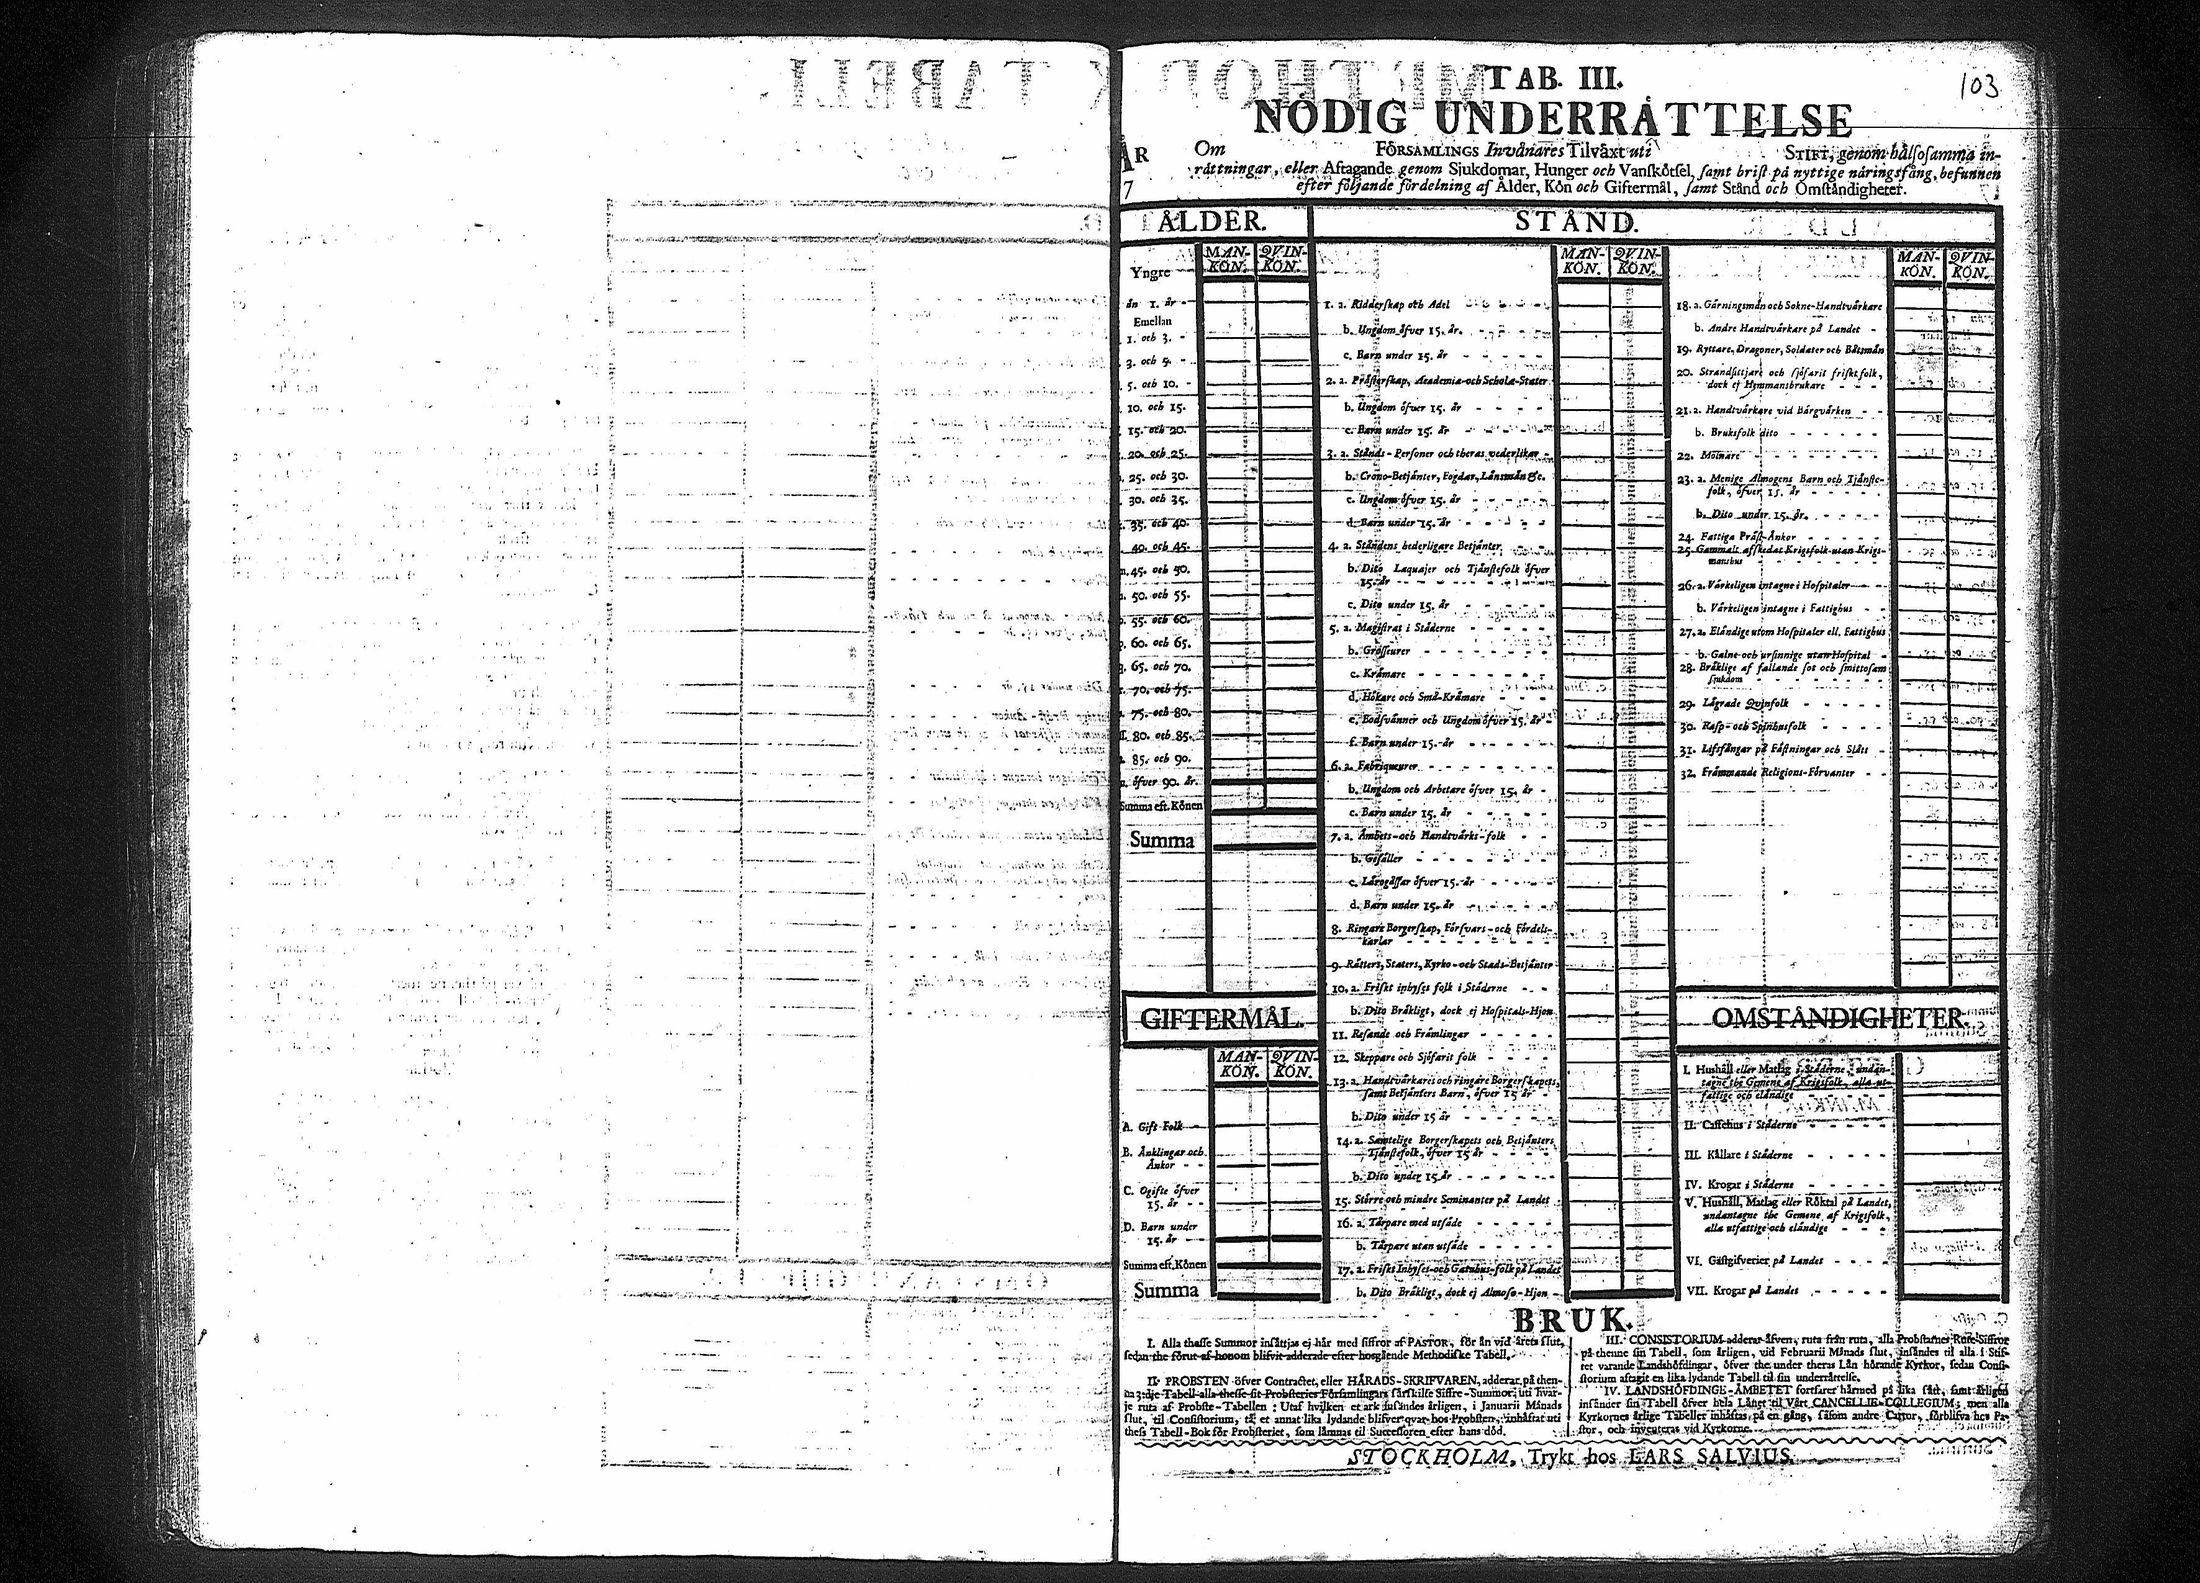 103
TAB. III.
NÖDIG UNDERRÅTTELSE
ÅR
Om FÖRSAMLINGS Invånares Tilvåxt uti STIFT, genom hålsosamma in-
råttningar, eller Aftagande genom Sjukdomar, Hunger och Vanskötsel, samt brist på nyttige näringsfång, befunnen
7 efter följande fördelning af Ålder, Kön och Giftermål, samt Stånd och Omståndigheter.
ÅLDER.
MAN-KÖN. QVIN-KÖN.
Yngre
ån 1. år
Emellan
1. och 3.
3. och 5.
5. och 10.
10. och 15.
15. och 20.
20. och 25.
25. och 30.
30. och 35.
35. och 40.
40. och 45.
45. och 50.
50. och 55.
55. och 60.
60. och 65.
65. och 70.
70. och 75.
75. och 80.
80. och 85.
85. och 90.
öfver 90. år.
Summa eft. Könen
Summa
GIFTERMÅL.
MAN-KÖN. QVIN-KÖN.
A. Gift Folk
B. Ånklingar och
Ånkor
C. Ogifte öfver
15. år
D. Barn under
15. år
Summa eft. Könen
Summa
STÅND.
MAN-KÖN. QVIN-KÖN.
1. a. Ridderskap och Adel
b. Ungdom öfver 15. år.
c. Barn under 15. år
2. a. Pråsterskap, Academiæ-och Scholæ-Stater
b. Ungdom öfver 15. år
c. Barn under 15. år
3. a. Stånds-Personer och theras vederlikar
b. Crono-Betjånter, Fogdar, Lånsmån &c.
c. Ungdom öfver 15. år
d. Barn under 15. år
4. a. Ståndens hederligare Betjånter
b. Dito Laquajer och Tjånstefolk öfver
15. år
c. Dito under 15. år
5. a. Magistrat i Ståderne
b. Grosseurer
c. Kråmare
d. Hökare och Små-Kråmare
e. Bodsvånner och Ungdom öfver 15. år
f. Barn under 15. år
6. a. Fabriqueurer
b. Ungdom och Arbetare öfver 15. år
c. Barn under 15. år
7. a. Åmbets-och Handtvårks-folk
b. Gesåller
c. Lärogåssar öfver 15. år
d. Barn under 15. år
8. Ringare Borgerskap, Försvars-och Fördels-
karlar
9. Råtters, Staters, Kyrko-och Stads-Betjånter
10. a. Friskt inhyses folk i Ståderne
b. Dito Bråkligt, dock ej Hospitals-Hjon
11. Resande och Fråmlingar
12. Skeppare och Sjöfarit folk
13. a. Handtvårkares och ringare Borgerskapets,
samt Betjånters Barn, öfver 15 år
b. Dito under 15 år
14. a. Samtelige Borgerskapets och Betjånters
Tjånstefolk, öfver 15 år
b. Dito under 15. år
15. Större och mindre Seminanter på Landet
16. a. Tårpare med utsåde
b. Tårpare utan utsåde
17. a. Friskt Inhyses-och Gatuhus-folk på Landet
b. Dito Bråkligt, dock ej Almoso-Hjon
MAN-KÖN. QVIN-KÖN.
18. a. Gårningsmån och Sokne-Handtvårkare
b. Andre Handtvårkare på Landet
19. Ryttare, Dragoner, Soldater och Båtsmån
20. Strandsittjare och sjöfarit friskt folk,
dock ej Hemmansbrukare
21. a. Handtvårkare vid Bårgvårken
b. Bruksfolk dito
22. Mölnare
23. a. Menige Almogens Barn och Tjånste-
folk, öfver 15. år
b. Dito under 15. år.
24. Fattiga Pråst-Ånkor
25. Gammalt afskedat Krigsfolk utan Krigs-
manshus
26. a. Vårkeligen intagne i Hospitaler
b. Vårkeligen intagne i Fattighus
27. a. Elåndige utom Hospitaler ell. Fattighus
b. Galne och ursinnige utan Hospital
28. Bråklige af fallande sot och smittosam
sjukdom
29. Lågrade Qvinfolk
30. Rasp-och Spinhusfolk
31. Lifsfångar på Fåstningar och Slått
32. Fråmmande Religions-Förvanter
OMSTÅNDIGHETER.
I. Hushåll eller Matlag i Ståderne, undan-
tagne the Gemene af Krigsfolk, alla ut-
fattige och elåndige
II. Caffehus i Ståderne
III. Kållare i Ståderne
IV. Krogar i Ståderne
V. Hushåll, Matlag eller Röktal på Landet,
undantagne the Gemene af Krigsfolk,
alla utfattige och elåndige
VI. Gåstgifverier på Landet
VII. Krogar på Landet
BRUK.
I. Alla thesse Summor insåttjas ej hår med siffror af PASTOR, för ån vid årets slut,
sedan the förut af honom blifvit adderade efter hosgående Methodiske Tabell.
II. PROBSTEN öfver Contractet, eller HÅRADS-SKRIFVAREN, adderar på then-
na 3:dje Tabell alla thesse sit Probsteries Församlingars sårskilte Siffre-Summor, uti hvar-
je ruta af Probste-Tabellen: Utaf hvilken et ark insåndes årligen, i Januarii Månads
slut, til Consistorium, tå et annat lika lydande blifver qvar hos Probsten, inhåftat uti
thess Tabell-Bok för Probsteriet, som låmnas til Successoren efter hans död.
III. CONSISTORIUM adderar åfven, ruta från ruta, alla Probstarnes Rute-Siffror
på thenne sin Tabell, som årligen, vid Februarii Månads slut, insåndes til alla i Stif-
tet varande Landshöfdingar, öfver the under theras Lån hörande Kyrkor, sedan Consi-
storium aftagit en lika lydande Tabell til sin underråttelse.
IV. LANDSHÖFDINGE-ÅMBETET fortfarer hårmed på lika sått, samt årligen
insånder sin Tabell öfver hela Lånet til Vårt CANCELLIE-COLLEGIUM; men alla
Kyrkornes årlige Tabeller inhåftas på en gång, såsom andre Cartor, förblifva hos Pa-
stor, och inventeras vid Kyrkorne.
STOCKHOLM, Trykt hos LARS SALVIUS.